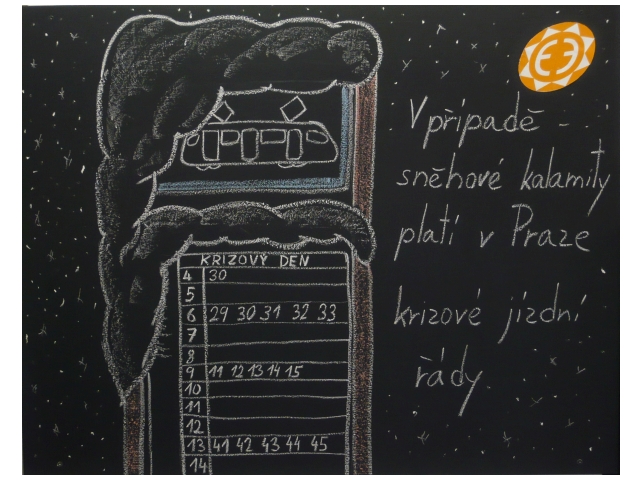 V případě -
sněhové kalamity
platí v Praze
krizové jízdní
řády
KRIZOVÝ DEN
4 30
5
6 29 30 31 32 33
7
8
9 11 12 13 14 15
10
11
12
13 41 42 43 44 45
14